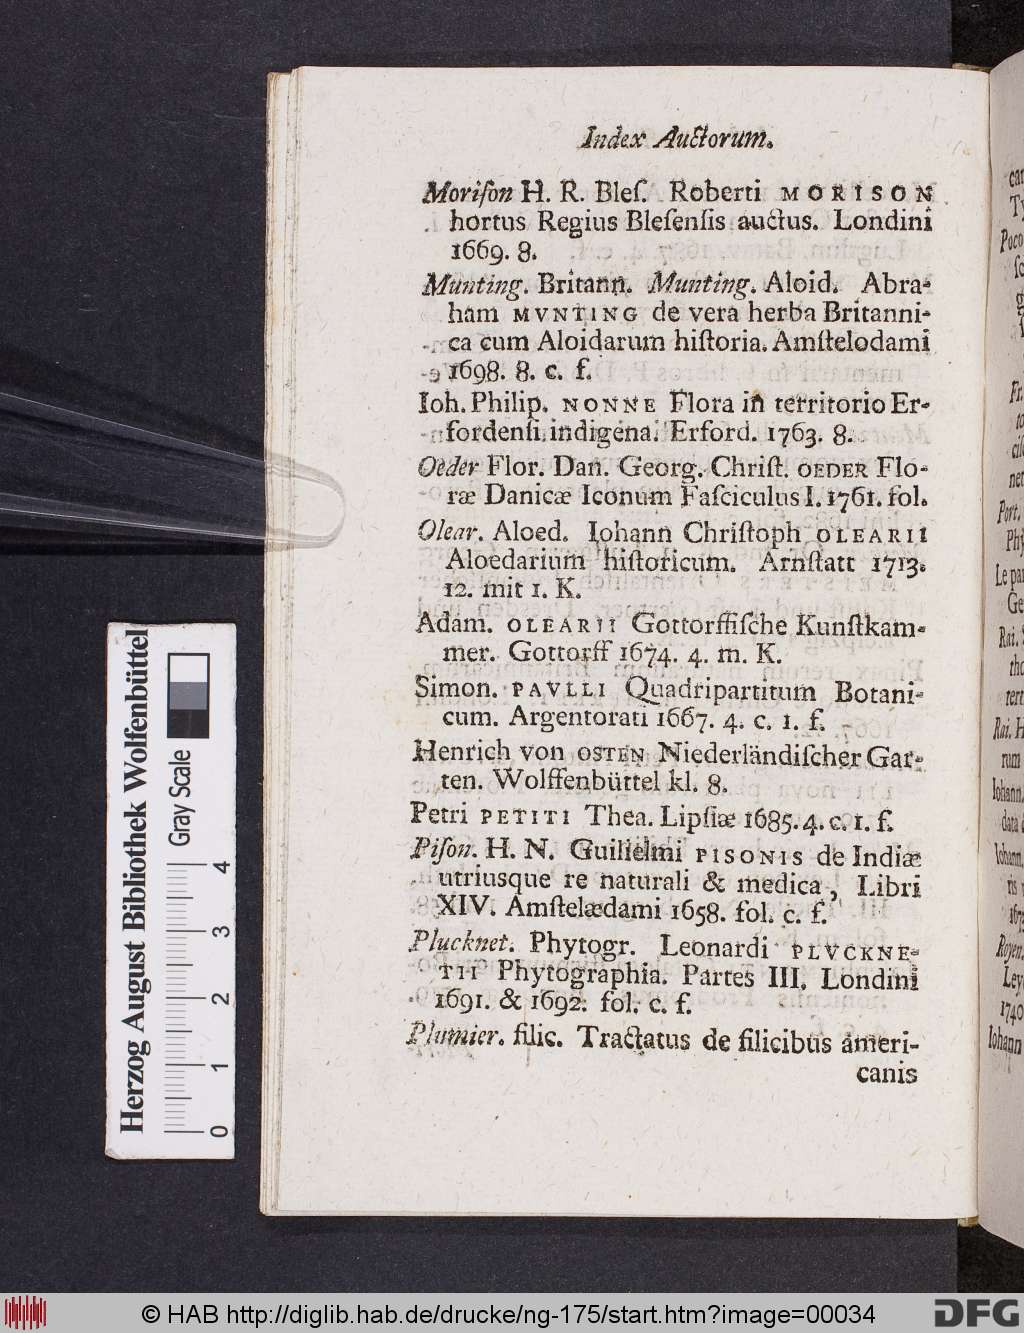 Index Auctorum.
Moriſon H. R. Bleſ. Roberti MORISON
hortus Regius Bleſenſis auctus. Londini
1669. 8.
Munting. Britann. Munting. Aloid. Abra-
ham MVNTING de vera herba Britanni-
ca cum Aloidarum hiſtoria. Amſtelodami
1698. 8. c. f.
Ioh. Philip. NONNE Flora in territorio Er-
fordenſi indigena. Erford. 1763. 8.
Oeder Flor. Dan. Georg. Chriſt. OEDER Flo-
ræ Danicæ Iconum Faſciculus I. 1761. fol.
Olear. Aloed. Iohann Chriſtoph OLEARII
Aloedarium hiſtoricum. Arnſtatt 1713.
12. mit 1. K.
Adam. OLEARII Gottorffiſche Kunſtkam-
mer. Gottorff 1674. 4. m. K.
Simon. PAVLLI Quadripartitum Botani-
cum. Argentorati 1667. 4. c. 1. f.
Henrich von OSTEN Niederländiſcher Gar-
ten. Wolffenbüttel kl. 8.
Petri PETITI Thea. Lipſiæ 1685. 4. c. 1. f.
Piſon. H. N. Guilielmi PISONIS de Indiæ
utriusque re naturali & medica, Libri
XIV. Amſtelædami 1658. fol. c. f.
Plucknet. Phytogr. Leonardi PLVCKNE-
TII Phytographia. Partes III. Londini
1691. & 1692. fol. c. f.
Plumier. filic. Tractatus de filicibus ameri-
canis
Herzog August Bibliothek Wolfenbüttel
Gray Scale
0 1 2 3 4
Poco
Fr.
Port.
Le
Rai.
Rai. H
rum
Iohann.
data
Iohann.
Royen.
Ley
1740
Iohann
© HAB http://diglib.hab.de/drucke/ng-175/start.htm?image=00034
DFG